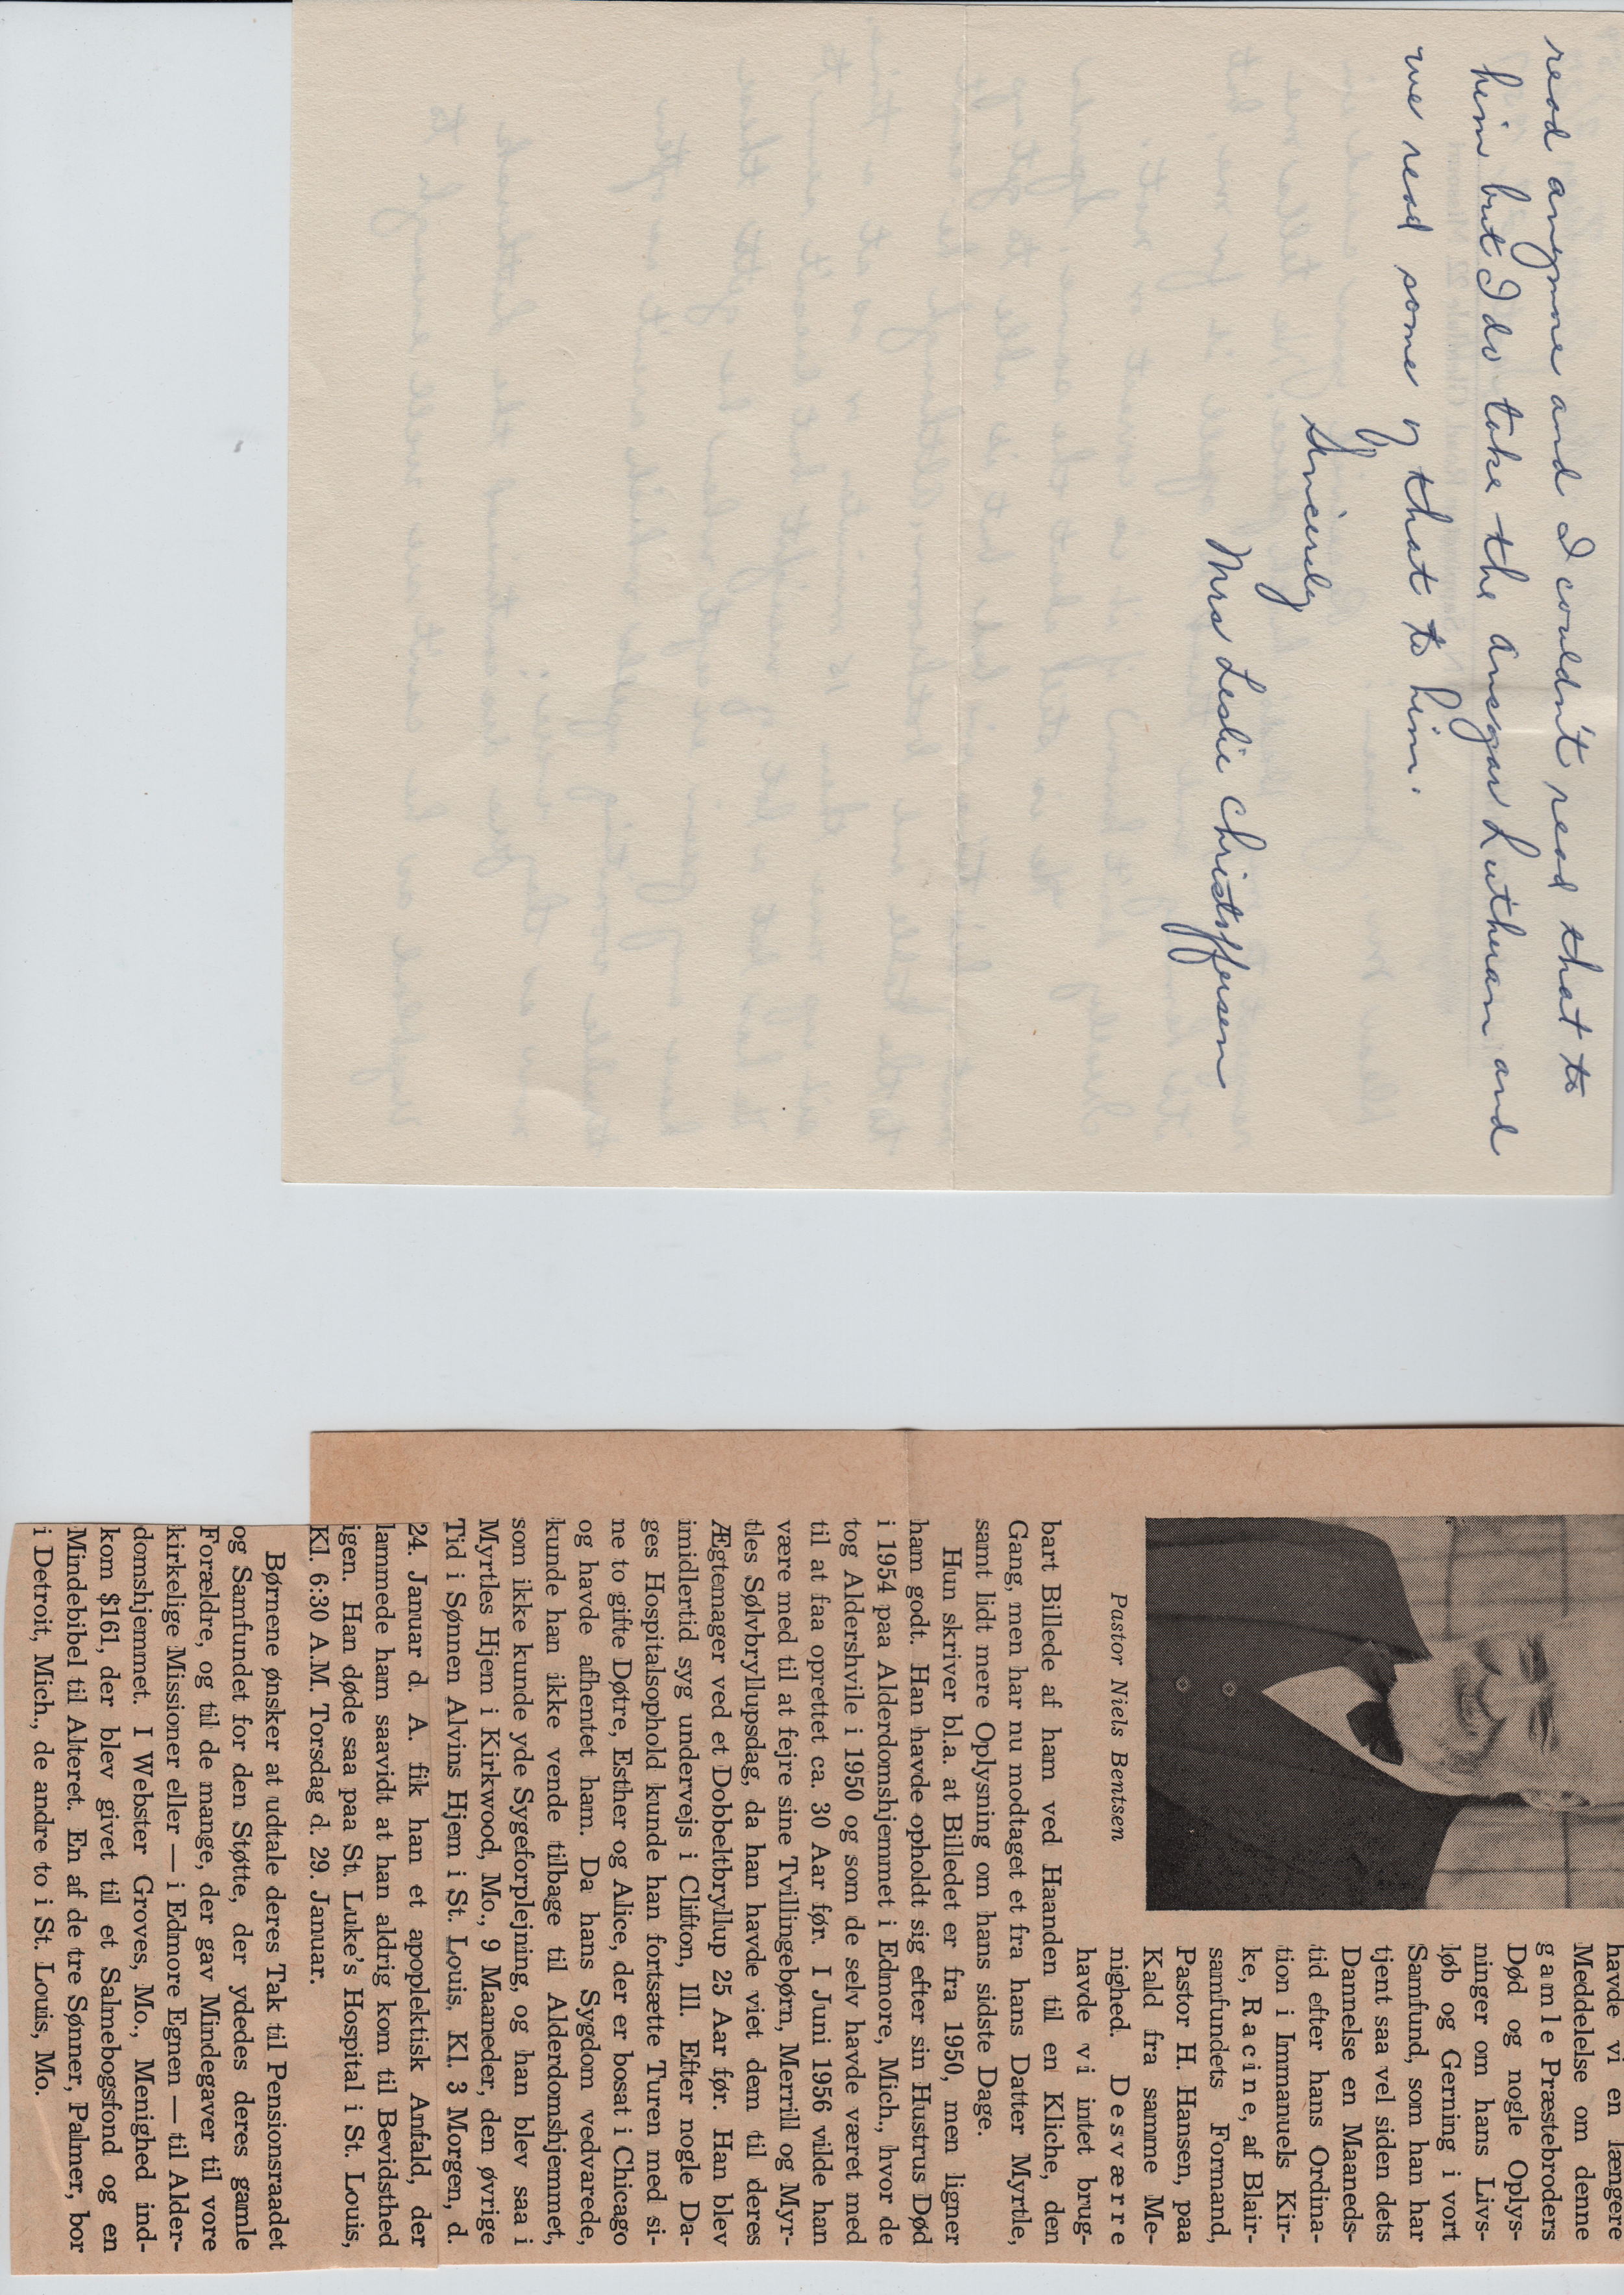 read anymore and I couldn't read that to
him but I do take the Ansgar Lutheran and
we read some of that to him.
Sincerely
Mrs Leslie Christoffersen
Pastor Niels Bentsen
havde vi en længere
Meddelelse om denne
gamle Præstebroders
Død og nogle Oplys-
ninger om hans Livs-
løb og Gerning i vort
Samfund, som han har
tjent saa vel siden dets
Dannelse en Maaneds-
tid efter hans Ordina-
tion i Immanuels Kir-
ke, Racine, af Blair-
samfundets Formand,
Pastor H. Hansen, paa
Kald fra samme Me-
nighed. Desværre
havde vi intet brug-
bart Billede af ham ved Haanden til en Kliche, den
Gang, men har nu modtaget et fra hans Datter Myrtle,
samt lidt mere Oplysning om hans sidste Dage.
Hun skriver bl.a. at Billedet er fra 1950, men ligner
ham godt. Han havde opholdt sig efter sin Hustrus Død
i 1954 paa Alderdomshjemmet i Edmore, Mich., hvor de
tog Aldershvile i 1950 og som de selv havde været med
til at faa oprettet ca. 30 Aar før. I Juni 1956 vilde han
være med til at fejre sine Tvillingebørn, Merrill og Myr-
tles Sølvbryllupsdag, da han havde viet dem til deres
Ægtemager ved et Dobbeltbryllup 25 Aar før. Han blev
imidlertid syg undervejs i Clifton, Ill. Efter nogle Da-
ges Hospitalsophold kunde han fortsætte Turen med si-
ne to gifte Døtre, Esther og Alice, der er bosat i Chicago
og havde afhentet ham. Da hans Sygdom vedvarede,
kunde han ikke vende tilbage til Alderdomshjemmet,
som ikke kunde yde Sygeforplejning, og han blev saa i
Myrtles Hjem i Kirkwood, Mo., 9 Maaneder, den øvrige
Tid i Sønnen Alvins Hjem i St. Louis. Kl. 3 Morgen, d.
24. Januar d. A. fik han et apoplektisk Anfald, der
lammede ham saavidt at han aldrig kom til Bevidsthed
igen. Han døde saa paa St. Luke's Hospital i St. Louis,
Kl. 6:30 A.M. Torsdag d. 29. Januar.
Børnene ønsker at udtale deres Tak til Pensionsraadet
og Samfundet for den Støtte, der ydedes deres gamle
Forældre, og til de mange, der gav Mindegaver til vore
kirkelige Missioner eller — i Edmore Egnen — til Alder-
domshjemmet. I Webster Groves, Mo., Menighed ind-
kom $161, der blev givet til et Salmebogsfond og en
Mindebibel til Alteret. En af de tre Sønner, Palmer, bor
i Detroit, Mich., de andre to i St. Louis, Mo.